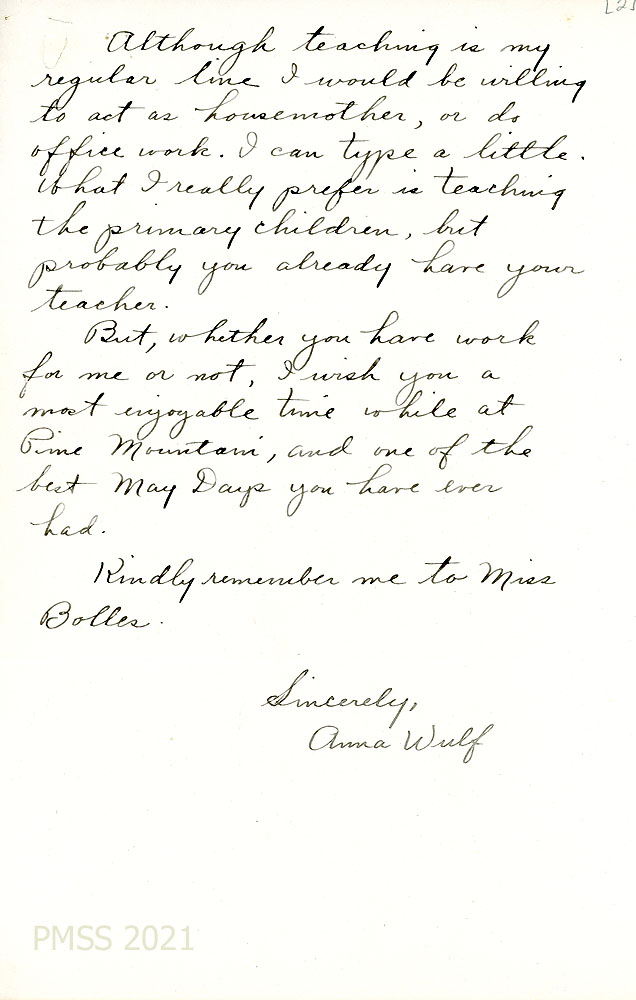 [2]
Although teaching is my
regular line I would be willing
to act as housemother, or do
office work. I can type a little.
What I really prefer is teaching
the primary children, but
probably you already have your
teacher.
But, whether you have work
for me or not, I wish you a
most enjoyable time while at
Pine Mountain, and one of the
best May Days you have ever
had.
Kindly remember me to Miss
Bolles.
Sincerely,
Anna Wulf
PMSS 2021